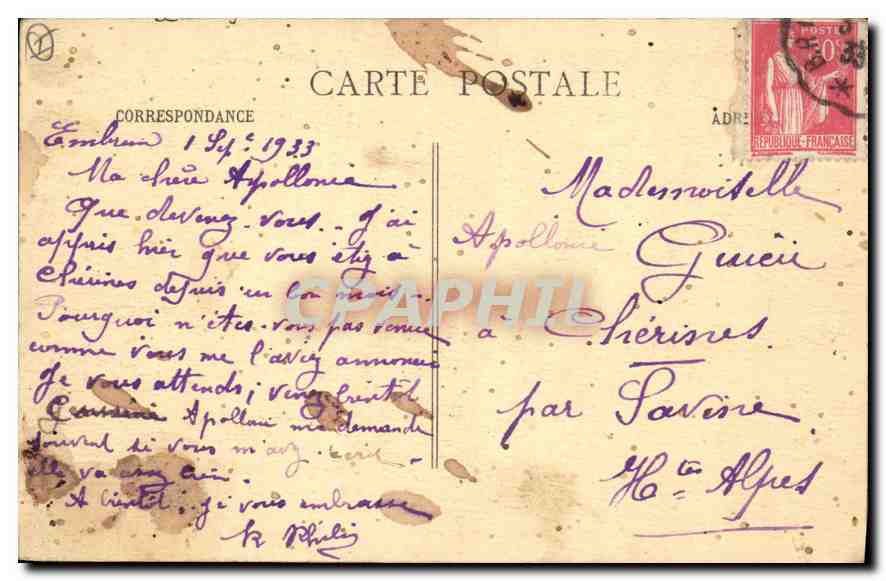 CARTE POSTALE
CORRESPONDANCE
Embrun 1 Sept 1933
Ma chère Apollonie
Que devenez-vous.. J'ai
appris hier que vous étiez à
Chérines depuis un bon mois.
Pourquoi n'êtes-vous pas venue
comme vous me l'aviez annoncé
Je vous attends; venez bientôt
me demande
souvent si vous m'avez écrit
elle va assez bien.
A bientôt. Je vous embrasse
ADRE
Mademoiselle
Apollonie
à Chérines
par Savine
Htes Alpes
POSTES
50c
REPUBLIQUE-FRANÇAISE
33
CPAPHIL